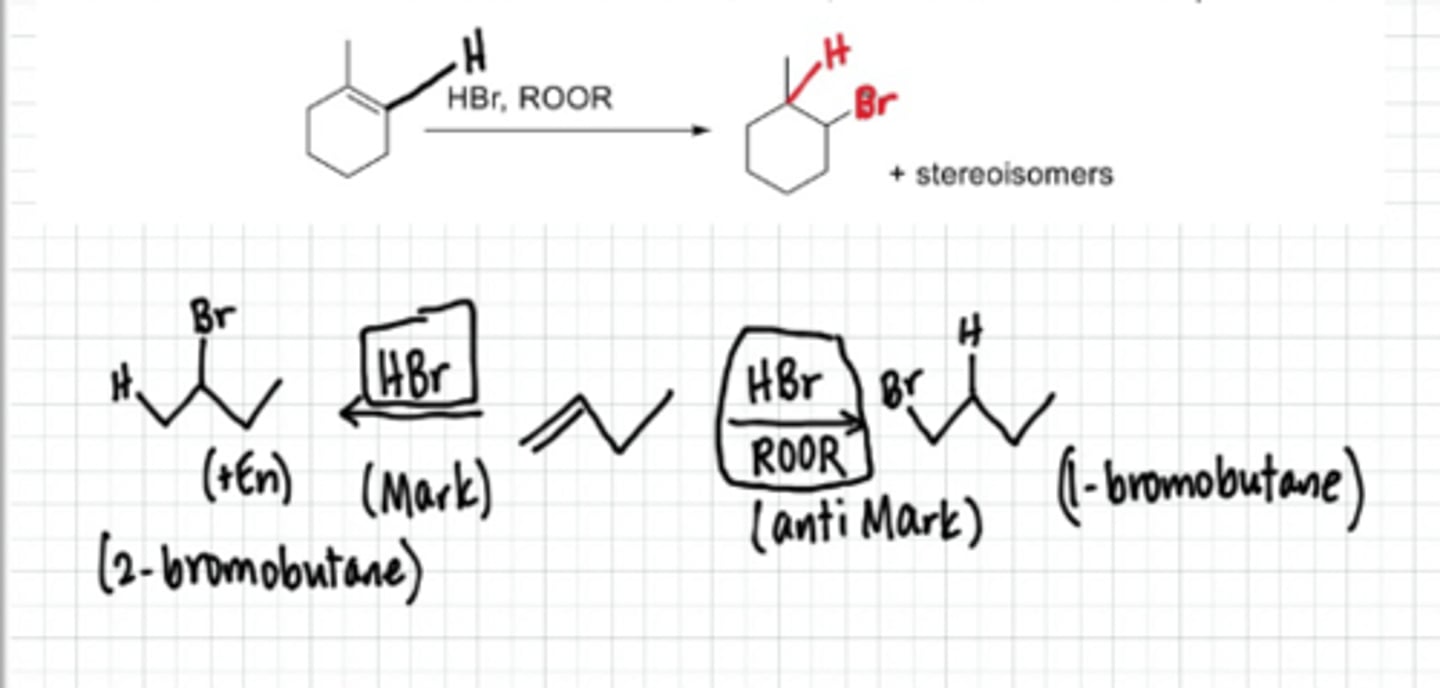 H
H
HBr, ROOR
Br
+ stereoisomers
Br
H
HBr
H
HBr
Br
ROOR
(+En)
(Mark)
(1-bromobutane)
(anti Mark)
(2-bromobutane)